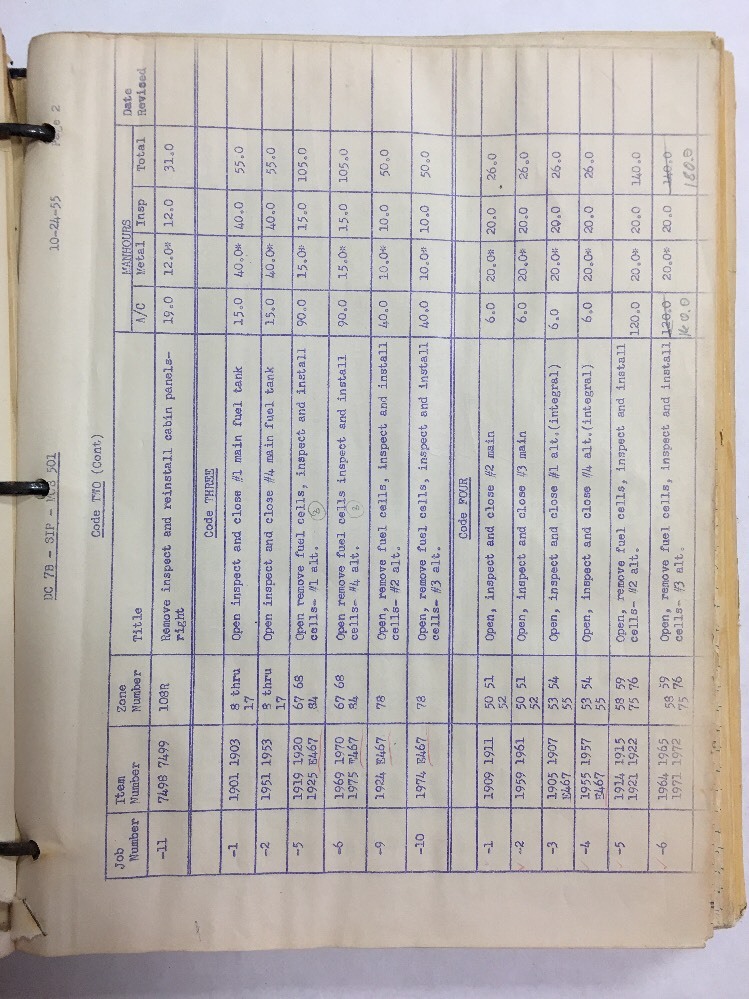 DC 7B - SIP - 501 10-24-55 2
Code TWO (Cont)
Job Number Item Number Zone Number Title MANHOURS A/C Metal Insp Total Date Revised
-11 7498 7499 108R Remove inspect and reinstall cabin panels- 19.0 12.0* 12.0 31.0
right
Code THREE
-1 1901 1903 8 thru Open inspect and close #1 main fuel tank 15.0 40.0* 40.0 55.0
17
-2 1951 1953 8 thru Open inspect and close #4 main fuel tank 15.0 40.0* 40.0 55.0
17
-5 1919 1920 67 68 Open remove fuel cells, inspect and install 90.0 15.0* 15.0 105.0
1925 E467 84 cells- #1 alt.
-6 1969 1970 67 68 Open remove fuel cells inspect and install 90.0 15.0* 15.0 105.0
1975 E467 84 cells- #4 alt.
-9 1924 E467 78 Open, remove fuel cells, inspect and install 40.0 10.0* 10.0 50.0
cells- #2 alt.
-10 1974 E467 78 Open, remove fuel cells, inspect and install 40.0 10.0* 10.0 50.0
cells- #3 alt.
Code FOUR
-1 1909 1911 50 51 Open, inspect and close #2 main 6.0 20.0* 20.0 26.0
52
-2 1959 1961 50 51 Open, inspect and close #3 main 6.0 20.0* 20.0 26.0
52
-3 1905 1907 53 54 Open, inspect and close #1 alt.(integral) 6.0 20.0* 20.0 26.0
E467 55
-4 1955 1957 53 54 Open, inspect and close #4 alt.(integral) 6.0 20.0* 20.0 26.0
E467 55
-5 1914 1915 58 59 Open, remove fuel cells, inspect and install 120.0 20.0* 20.0 140.0
1921 1922 75 76 cells- #2 alt.
-6 1964 1965 58 59 Open, remove fuel cells, inspect and install 120.0 20.0* 20.0 140.0
1971 1972 75 76 cells- #3 alt. 160.0 180.0